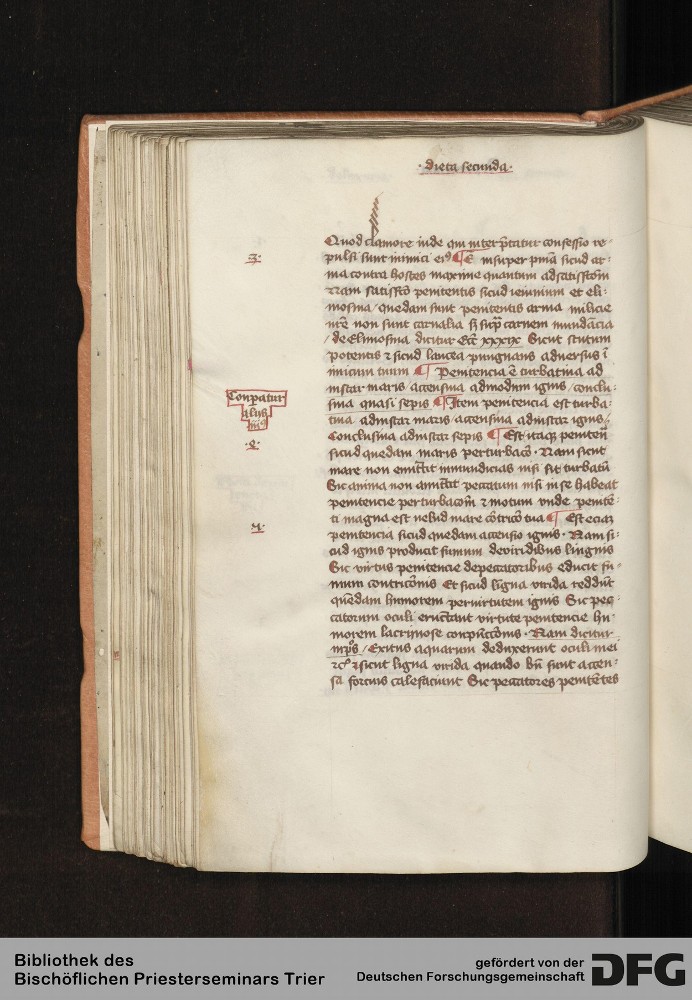 · dieta secunda ·
Quod clamore inde qui interp̄tatur confessio re-
pulsi sunt inimici eiꝰ ¶ E insuper pm̄a sicud ar-
3.
ma contra hostes maxime quantum ad satisfc̄om
Nam satisfc̄o penitentis sicud ieiunium et eli-
mosina / quedam sunt penitentis arma milicie
nr̄e non sunt carnalia sꝫ sup̄ carnem mundacia
/ de Elimosina dicitur Ecc̄ xxxix Sicut scutum
potentis ⁊ sicud lancea pungnans adversus ī
imicum tuum ¶ Penitencia ē turbatiua ad
instar maris / accensiua ad modum ignis / conclu-
Conp̄atur
alijs
siua quasi sepis ¶ Item penitencia est turba-
tiua ad instar maris accensiua ad instar ignis /
Conclusiua ad instar sepis ¶ Est itaqꝫ peniten̄
sicud quedam maris perturbac̄o · Nam sicut
mare non emittit inmundicias nisi sit turbatū
Sic anima non amittit peccatum nisi in se habeat
penitencie perturbacōm ⁊ motum vnde penitē-
ti magna est uelud mare cōtric̄o tua ¶ Est eciam
4.
penitencia sicud quedam accensio ignis · Nam si-
cud ignis producit fumum de viridibus lingnis
Sic virtus penitencie de peccatoribus educit fu-
mum contric̄onis Et sicud ligna virida reddūt
quēdam humorem per virtutem ignis Sic pec-
catorum oculi eructant virtute penitencie hu-
morem lacrimose conpūcc̄onis · Nam dicitur
in ps̄ / Exitus aquarum deduxerunt oculi mei
⁊cꝰ ⁊ sicut ligna virida quando bn̄ sunt accen-
sa forcius calefaciunt Sic peccatores penitētes
Bibliothek des
Bischöflichen Priesterseminars Trier
gefördert von der
Deutschen Forschungsgemeinschaft
DFG